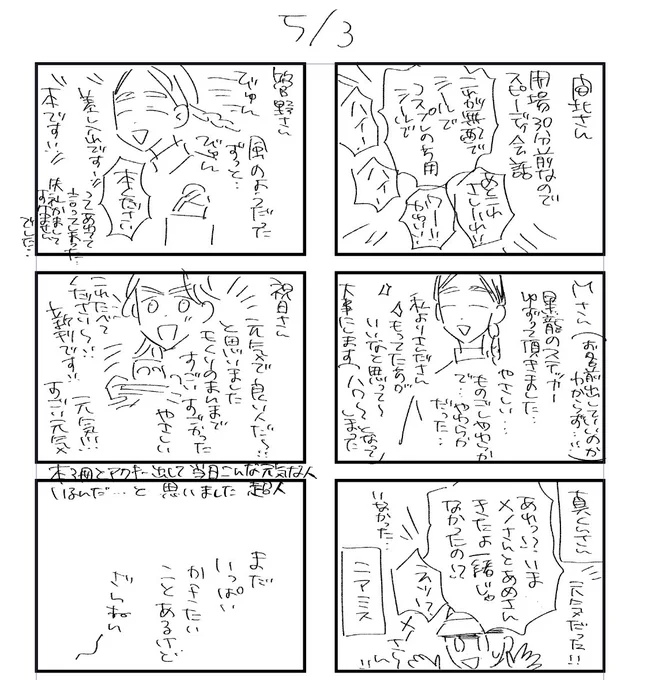 5/3
開場30分前なので
スピーディ会話
これが無配で
シールで
コスプレのち用
シールで
ハイ!
ハイ
あとこれ
さしいれ!!
ワー!!
かわいい!
菅野さん
びゅん
風のようだった
ずっと…
びゅん
本ください
差し入れです!!
本です!!
ってあわてて
言ってしまった…
失礼かまして
すみません
でした…
Mさん
(お名前出していいのか
わからず…!!)
黒龍のステッカー
ゆずって頂きました…
やさしい…
ものごしやわらか
で…やわらか
だった…
私よりさださん
もってた方が
いいなと思って〜
大事にします
(ハワ〜となって
しまった
祝日さん
元気で良い人だ〜!!
と思いました
モくりのまんまで
すごい
すごかった
やさしい
これたべて
ください〜!!
新刊です!!
元気!!!
すごい元気
本3冊とアクキー出して当日こんな元気な人
いるんだ…と思いました 超人
さん
元気だった!!
あれっ!?いま
メノさんとあめさん
きたよ一緒じゃ
なかったの!?
いなかった…
エッ!?
ニアミス
メノ
さ〜
ん!!
まだ
いっぱい
かきたい
ことあるけど